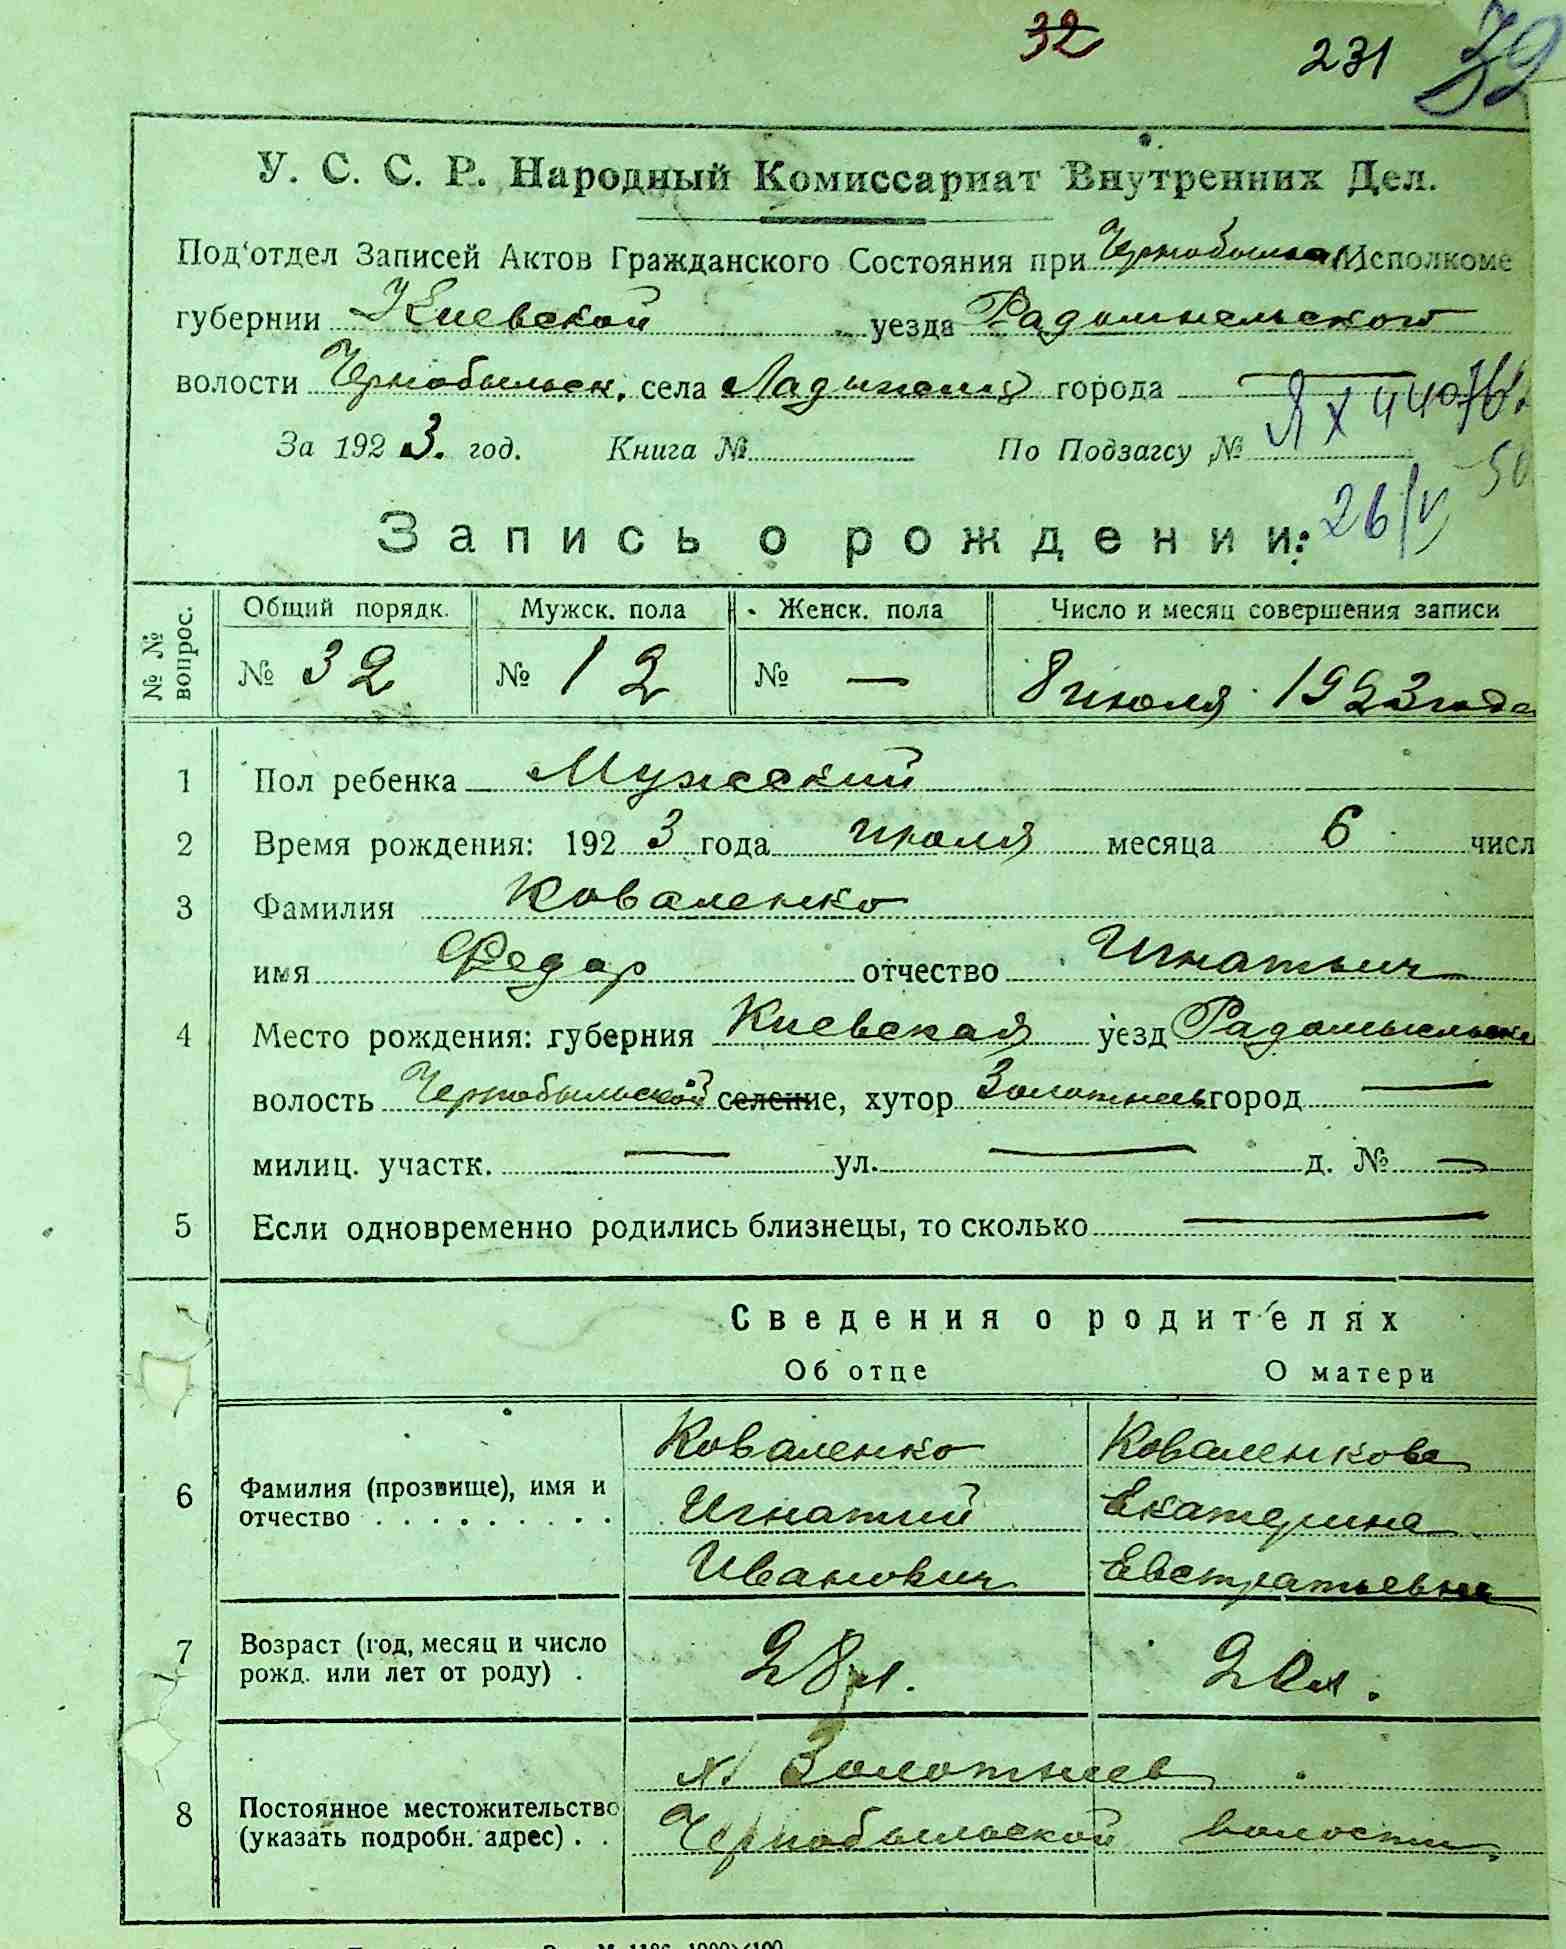 32
231 32
У. С. С. Р. Народный Комиссариат Внутренних Дел.
Под'отдел Записей Актов Гражданского Состояния при Исполкоме
губернии Киевской уезда Радомысльского
волости Чернобыльск. села Ладыжичи города —
За 1923. год. Книга № По Подзагсу №
26/V
Запись о рождении:
№ № вопрос.
Общий порядк. Мужск. пола Женск. пола Число и месяц совершения записи
№ 32 № 12 № — 8 июля 1923 года
1 Пол ребенка Мужеский
2 Время рождения: 1923 года июля месяца 6 числ
3 Фамилия Коваленко
имя Федор отчество Игнатьич
4 Место рождения: губерния Киевская уезд Радомысльск
волость Чернобыльской селение, хутор Золотнеев город —
милиц. участк. — ул. — д. № —
5 Если одновременно родились близнецы, то сколько —
Сведения о родителях
Об отце О матери
Коваленко Коваленкова
6 Фамилия (прозвище), имя и отчество . . . . . . . . . Игнатий Екатерина
Иванович Евстратьевна
7 Возраст (год, месяц и число рожд. или лет от роду) . 28 л. 20 л.
х. Золотнеев
8 Постоянное местожительство (указать подробн. адрес) . . Чернобыльской волости